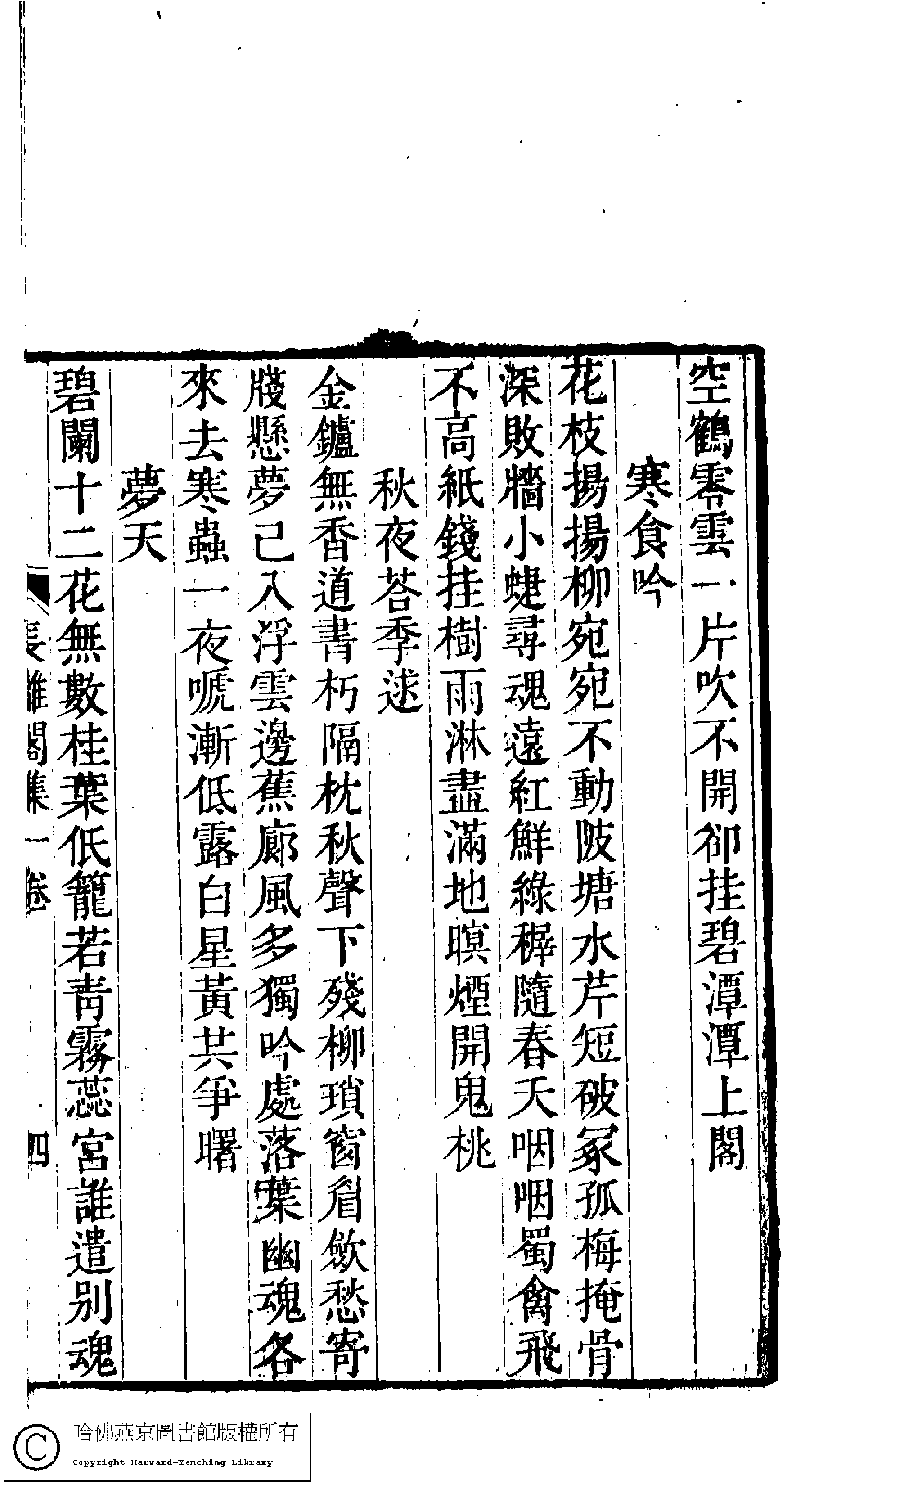 空鶴零雲一片吹不開卻挂碧潭潭上閣
寒食吟
花枝揚揚柳宛宛不動陂塘水芹短破冢孤梅掩骨
深敗牆小蜨尋魂遠紅鮮綠穉隨春天咽咽蜀禽飛
不高紙錢挂樹雨淋盡滿地暝煙開鬼桃
秋夜荅季逑
金鑪無香道書朽隔枕秋聲下殘柳瑣窗眉斂愁寄
牋懸夢已入浮雲邊蕉廊風多獨吟處落葉幽魂各
來去寒蟲一夜嗁漸低露白星黃共爭曙
夢天
碧闌十二花無數桂葉低籠若靑霧蕊宮誰遣別魂
長離閣集一卷
四
哈佛燕京圖書館版權所有
Copyright Harvard-Yenching Library